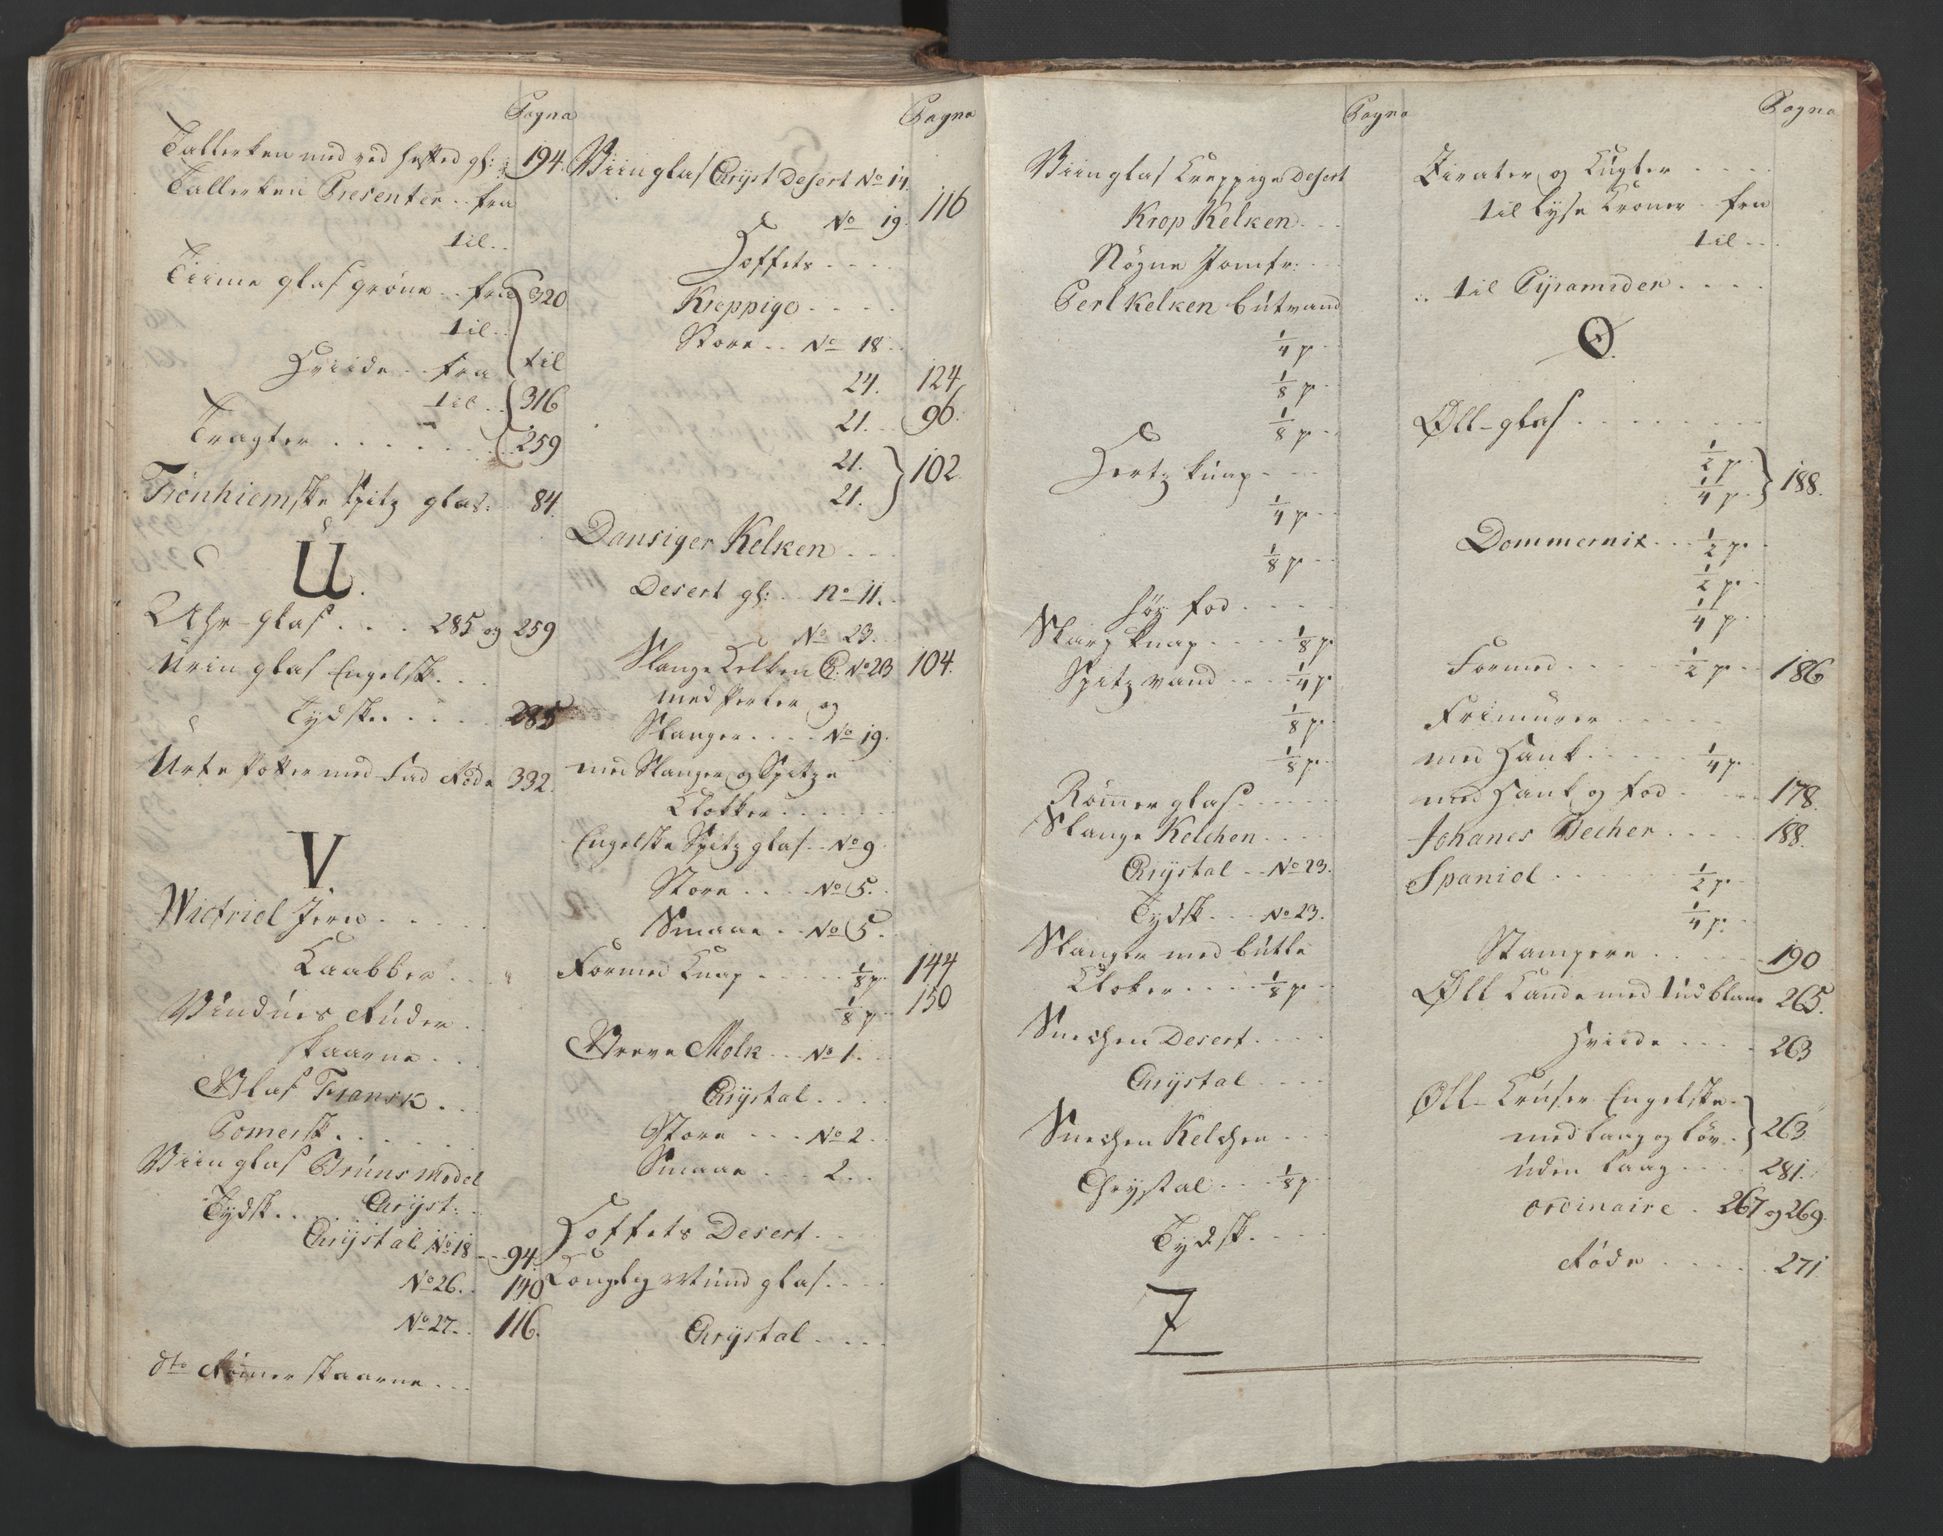 Pagna
Tallerken med ved hefted gl: 194.
Tallerken Presenter .. fra
til ..
Tiime glas grøne .. fra 320
til ..
Hviide .. fra til
til .. 316
Tragter . . . . . . 259
Tronhiemske Spitz glas. 84.
U.
Uhr-glas . . . 285 og 259
Urin glas Engelsk . . .
Tydske . . . . 285
Urte Potter med Fad Røde 332.
V.
Victriol Jern . . . .
Kaabber . . .
Vindues Ruder . .
skaarne . .
Glas Fransk . . .
Pomersk . . . . .
Viinglas Bruns model
Tydsk . . . Cryst: . .
Crijstal No 18 . . 94.
No 26. . 140
No 27. . 116.
dto Rømer skaarne . . .
Pagna
Viinglas Cryst Desert No 14.
No 19. 116
Hoffets . . .
Kroppige . . . . .
Store . . No 18 . .
24. 124
21. . 96.
21. 102
21.
Dansiger Kelken . . .
Desert gl: . . No 11. .
No 23. . .
Slange Kelken C: No 23 104.
med Perler og
Slanger . . . . No 19.
med Slanger og Spitze
Klokker . . . . . .
Engelske Spitz glas . . No 9.
Store . . . . No 5. .
Smaae . . No 5. .
Formed Knap . . . . . 1/8 p. 144
1/8 p. 150
Greve Molk . . No 1. . .
Crijstal . . . .
Store . . . No 2. .
Smaae . . . 2. . .
Hoffets Desert . . .
Kongelig Mund glas . . . .
Crijstal . . . .
Pagna
Viinglas Kroppige Desert
Krop Kelken . . .
Nøgne Jomfr: . . .
Perl Kelken butvand
1/4 p. . .
1/8 p. .
1/8 p. . .
Hertz knap . . .
1/4 p. . .
1/8 p. . .
høy fod . . . . .
Skarp knap . . . . 1/8 p.
Spitz vand . . . . 1/4 p.
1/8 p. .
1/8 p. . .
Römer glas . . . . . .
Slange Kelchen . . . .
Crijstal . . No 23.
Tydsk . . . No 23.
Slanger med butte
Kloker . . . . 1/8 p. . .
Snechen Desert . . . .
Crijstal . . . .
Snechen Kelchen . . .
Chrystal . . . 1/8 p. .
Tydsk . . . .
Z
Pagna
Zirater og Kugler . . . .
til Lyse Kroner . fra
til . . .
.. til Pyramider . . . .
Ø.
Øll-glas . . . . . . . .
1/2 p. 188.
1/4 p.
Dommernik . . 1/2 p. .
1/2 p. .
1/4 p.
Formed . . . . . 1/2 p. . 186
Frimurer . . . . .
med Hank . . . . . 1/4 p.
med Hank og fod . . . 178.
Johanes Becher . . . . 188.
Spaniol . . . . . . 1/2 p.
1/4 p.
Stampere . . . . . . 190
Øll Kande med Lud blaae 265.
Hviide . . . . 263
Øll-Kruser Engelske .
med laag og løv . . 263.
uden laag . . . . 281.
ordinaire . 267 og 269.
Røde . . . . . . 271.